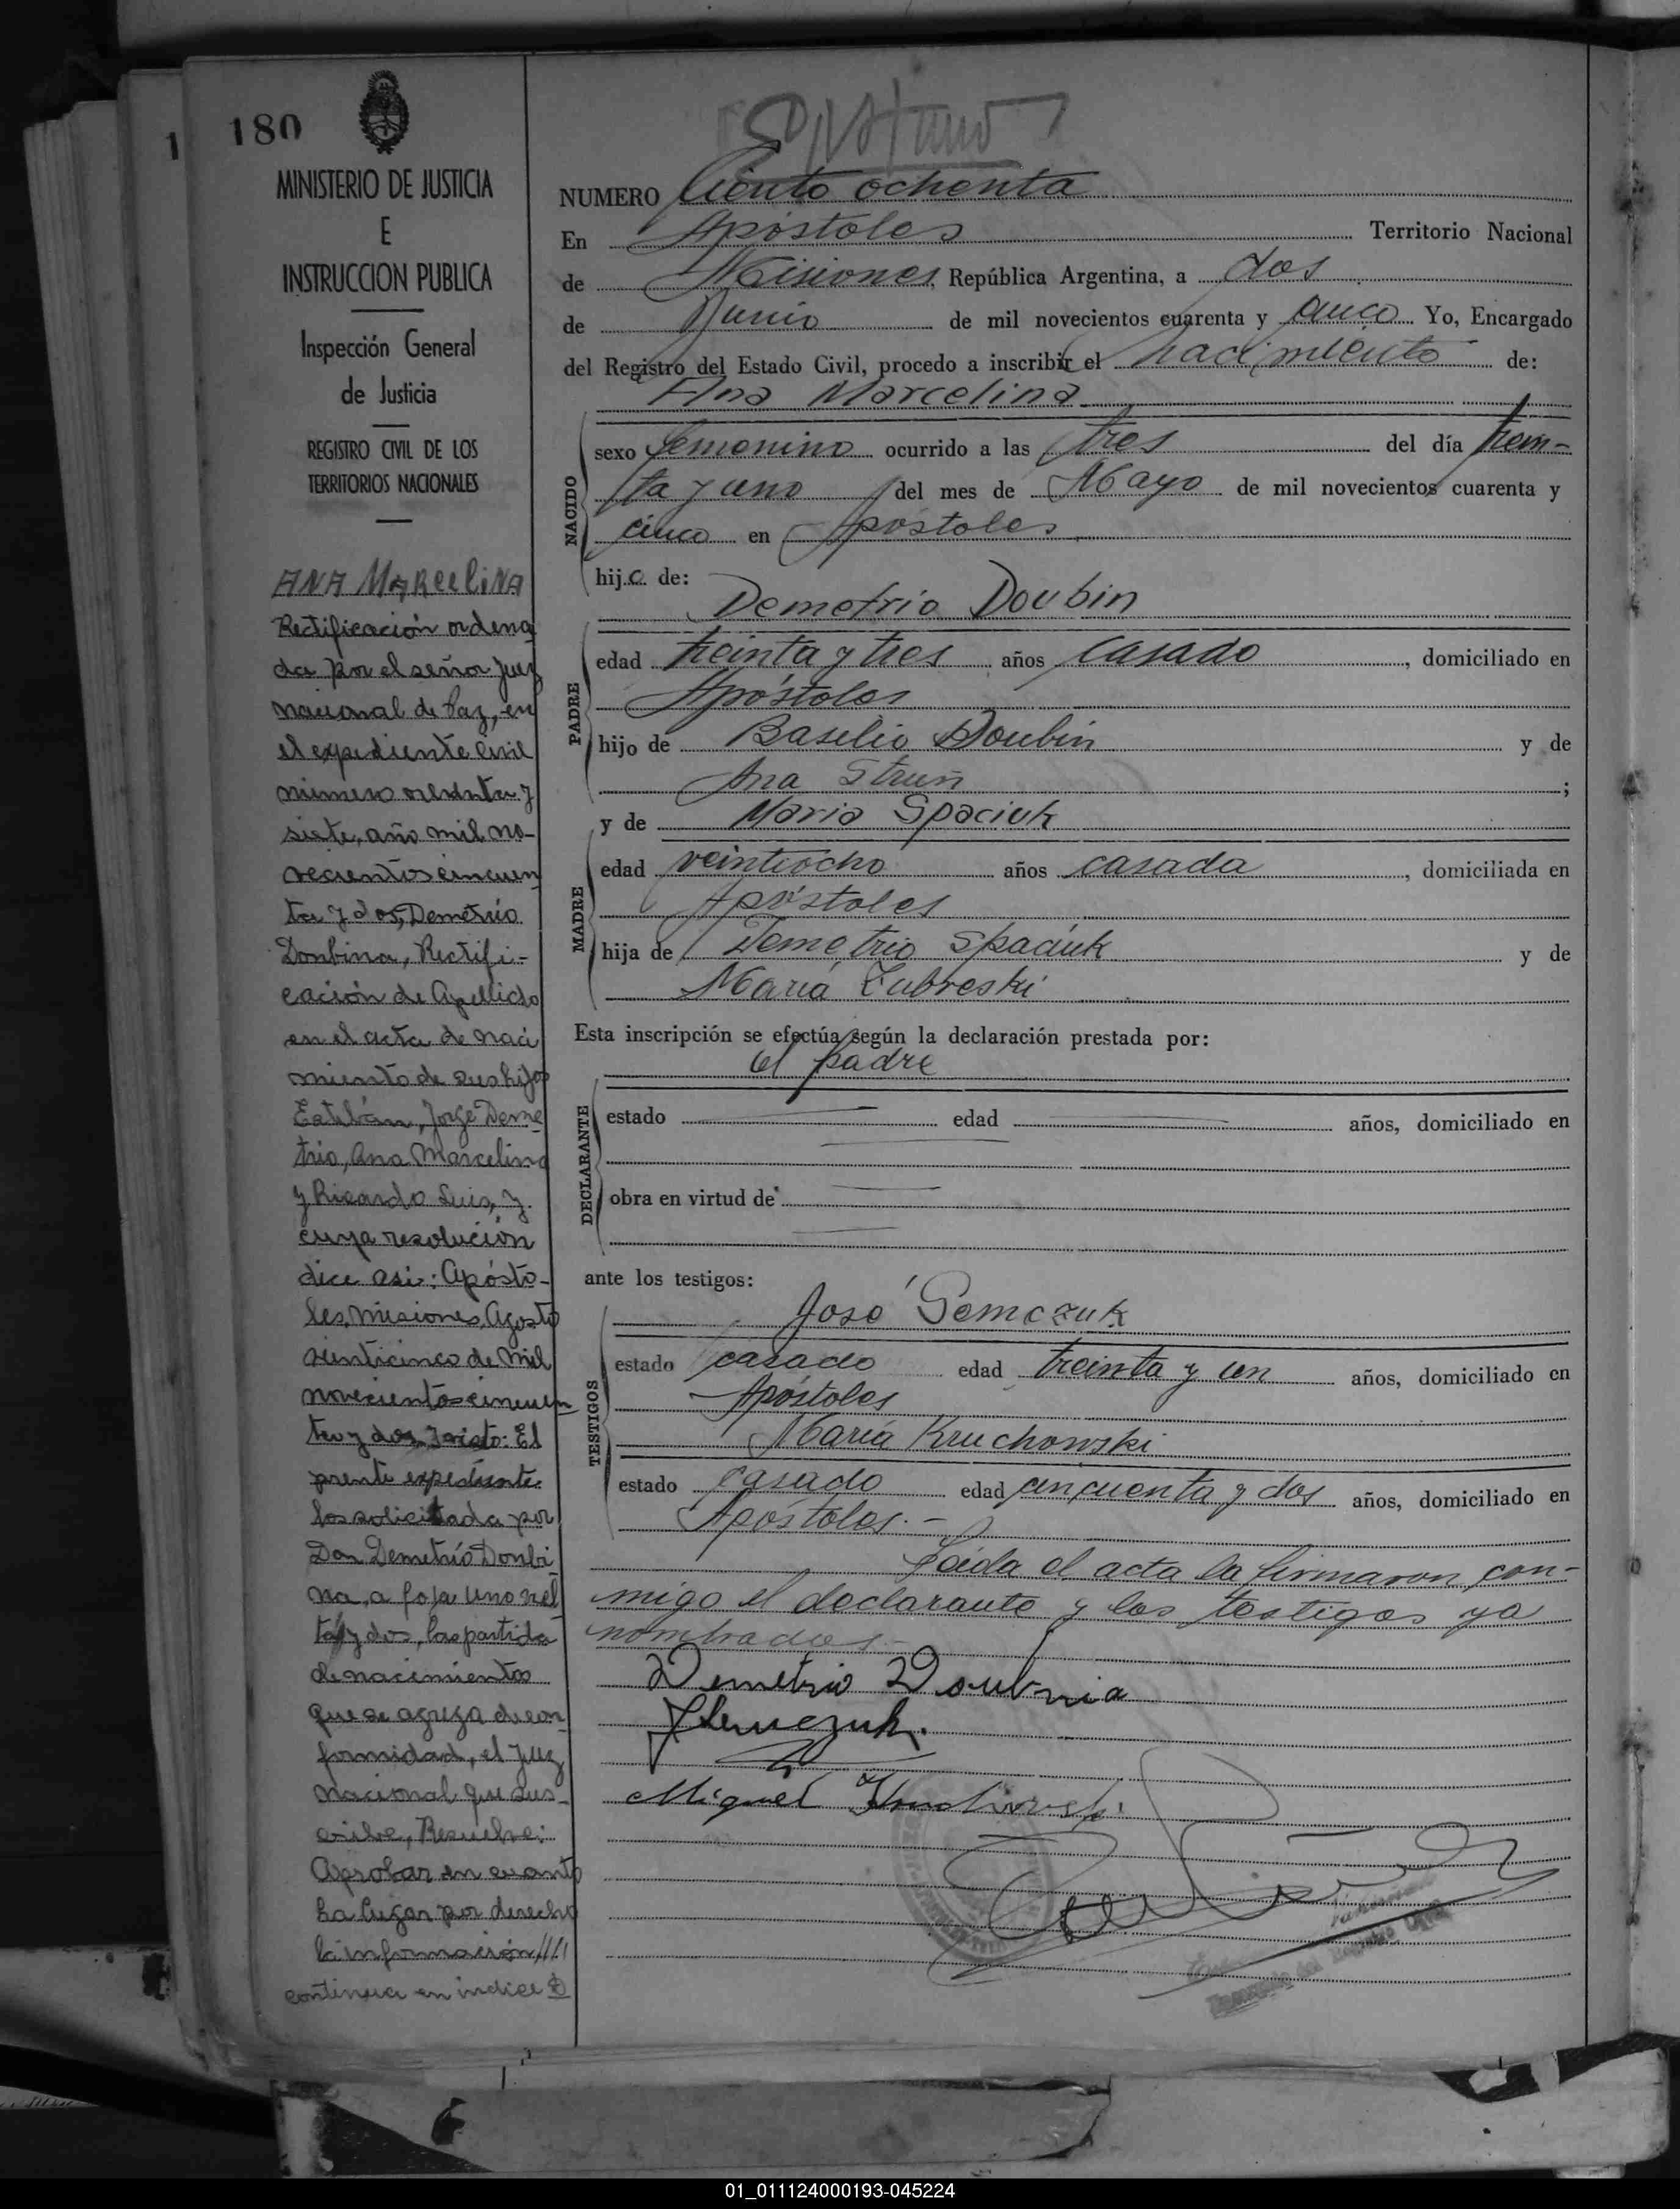 180
MINISTERIO DE JUSTICIA
E
INSTRUCCION PUBLICA
Inspección General
de Justicia
REGISTRO CIVIL DE LOS
TERRITORIOS NACIONALES
ANA MARCELINA
Rectificación ordena
da por el señor Juez
nacional de Paz, en
el expediente civil
número ochenta y
siete, año mil no-
vecientos cincuen
ta y dos, Demetrio
Doubina, Rectifi-
cación de Apellido
en el acta de naci
miento de sus hijos
Esteban, Jorge Deme
trio, Ana Marcelina
y Ricardo Luis, y
cuya resolución
dice así: Apósto-
les, Misiones, Agosto
veinticinco de mil
novecientos cincuen
ta y dos, Y visto: El
prente expediente
los solicitada por
Don Demetrio Doubi
na, a foja uno vuel
ta y dos, las partida
de nacimientos
que se agrega de con
formidad, el Juez
nacional que sus-
cribe, Resuelve:
Aprobar en cuanto
ha lugar por derecho
la información ////
continua en indice D
NUMERO Ciento ochenta
En Apóstoles Territorio Nacional
de Misiones, República Argentina, a dos
de Junio de mil novecientos cuarenta y cinco Yo, Encargado
del Registro del Estado Civil, procedo a inscribir el nacimiento de:
Ana Marcelina
NACIDO
sexo femenino ocurrido a las tres del día trein-
ta y uno del mes de Mayo de mil novecientos cuarenta y
cinco en Apóstoles
hija de:
Demetrio Doubin
PADRE
edad treinta y tres años casado, domiciliado en
Apóstoles
hijo de Basilio Doubin y de
Ana Struñ;
y de Maria Spaciuk
MADRE
edad veintiocho años casada, domiciliada en
Apóstoles
hija de Demetrio Spaciuk y de
María Zubreski
Esta inscripción se efectúa según la declaración prestada por:
el padre
DECLARANTE
estado edad años, domiciliado en
obra en virtud de
ante los testigos:
José Semczuk
TESTIGOS
estado casado edad treinta y un años, domiciliado en
Apóstoles
María Kruchowski
estado casado edad cincuenta y dos años, domiciliado en
Apóstoles.-
Leída el acta la firmaron con-
migo el declarante y los testigos ya
nombrados.-
Demetrio Doubnia
JSemczuk.
Miguel Kruchowski
Encargado del Registro Civil
01_011124000193-045224